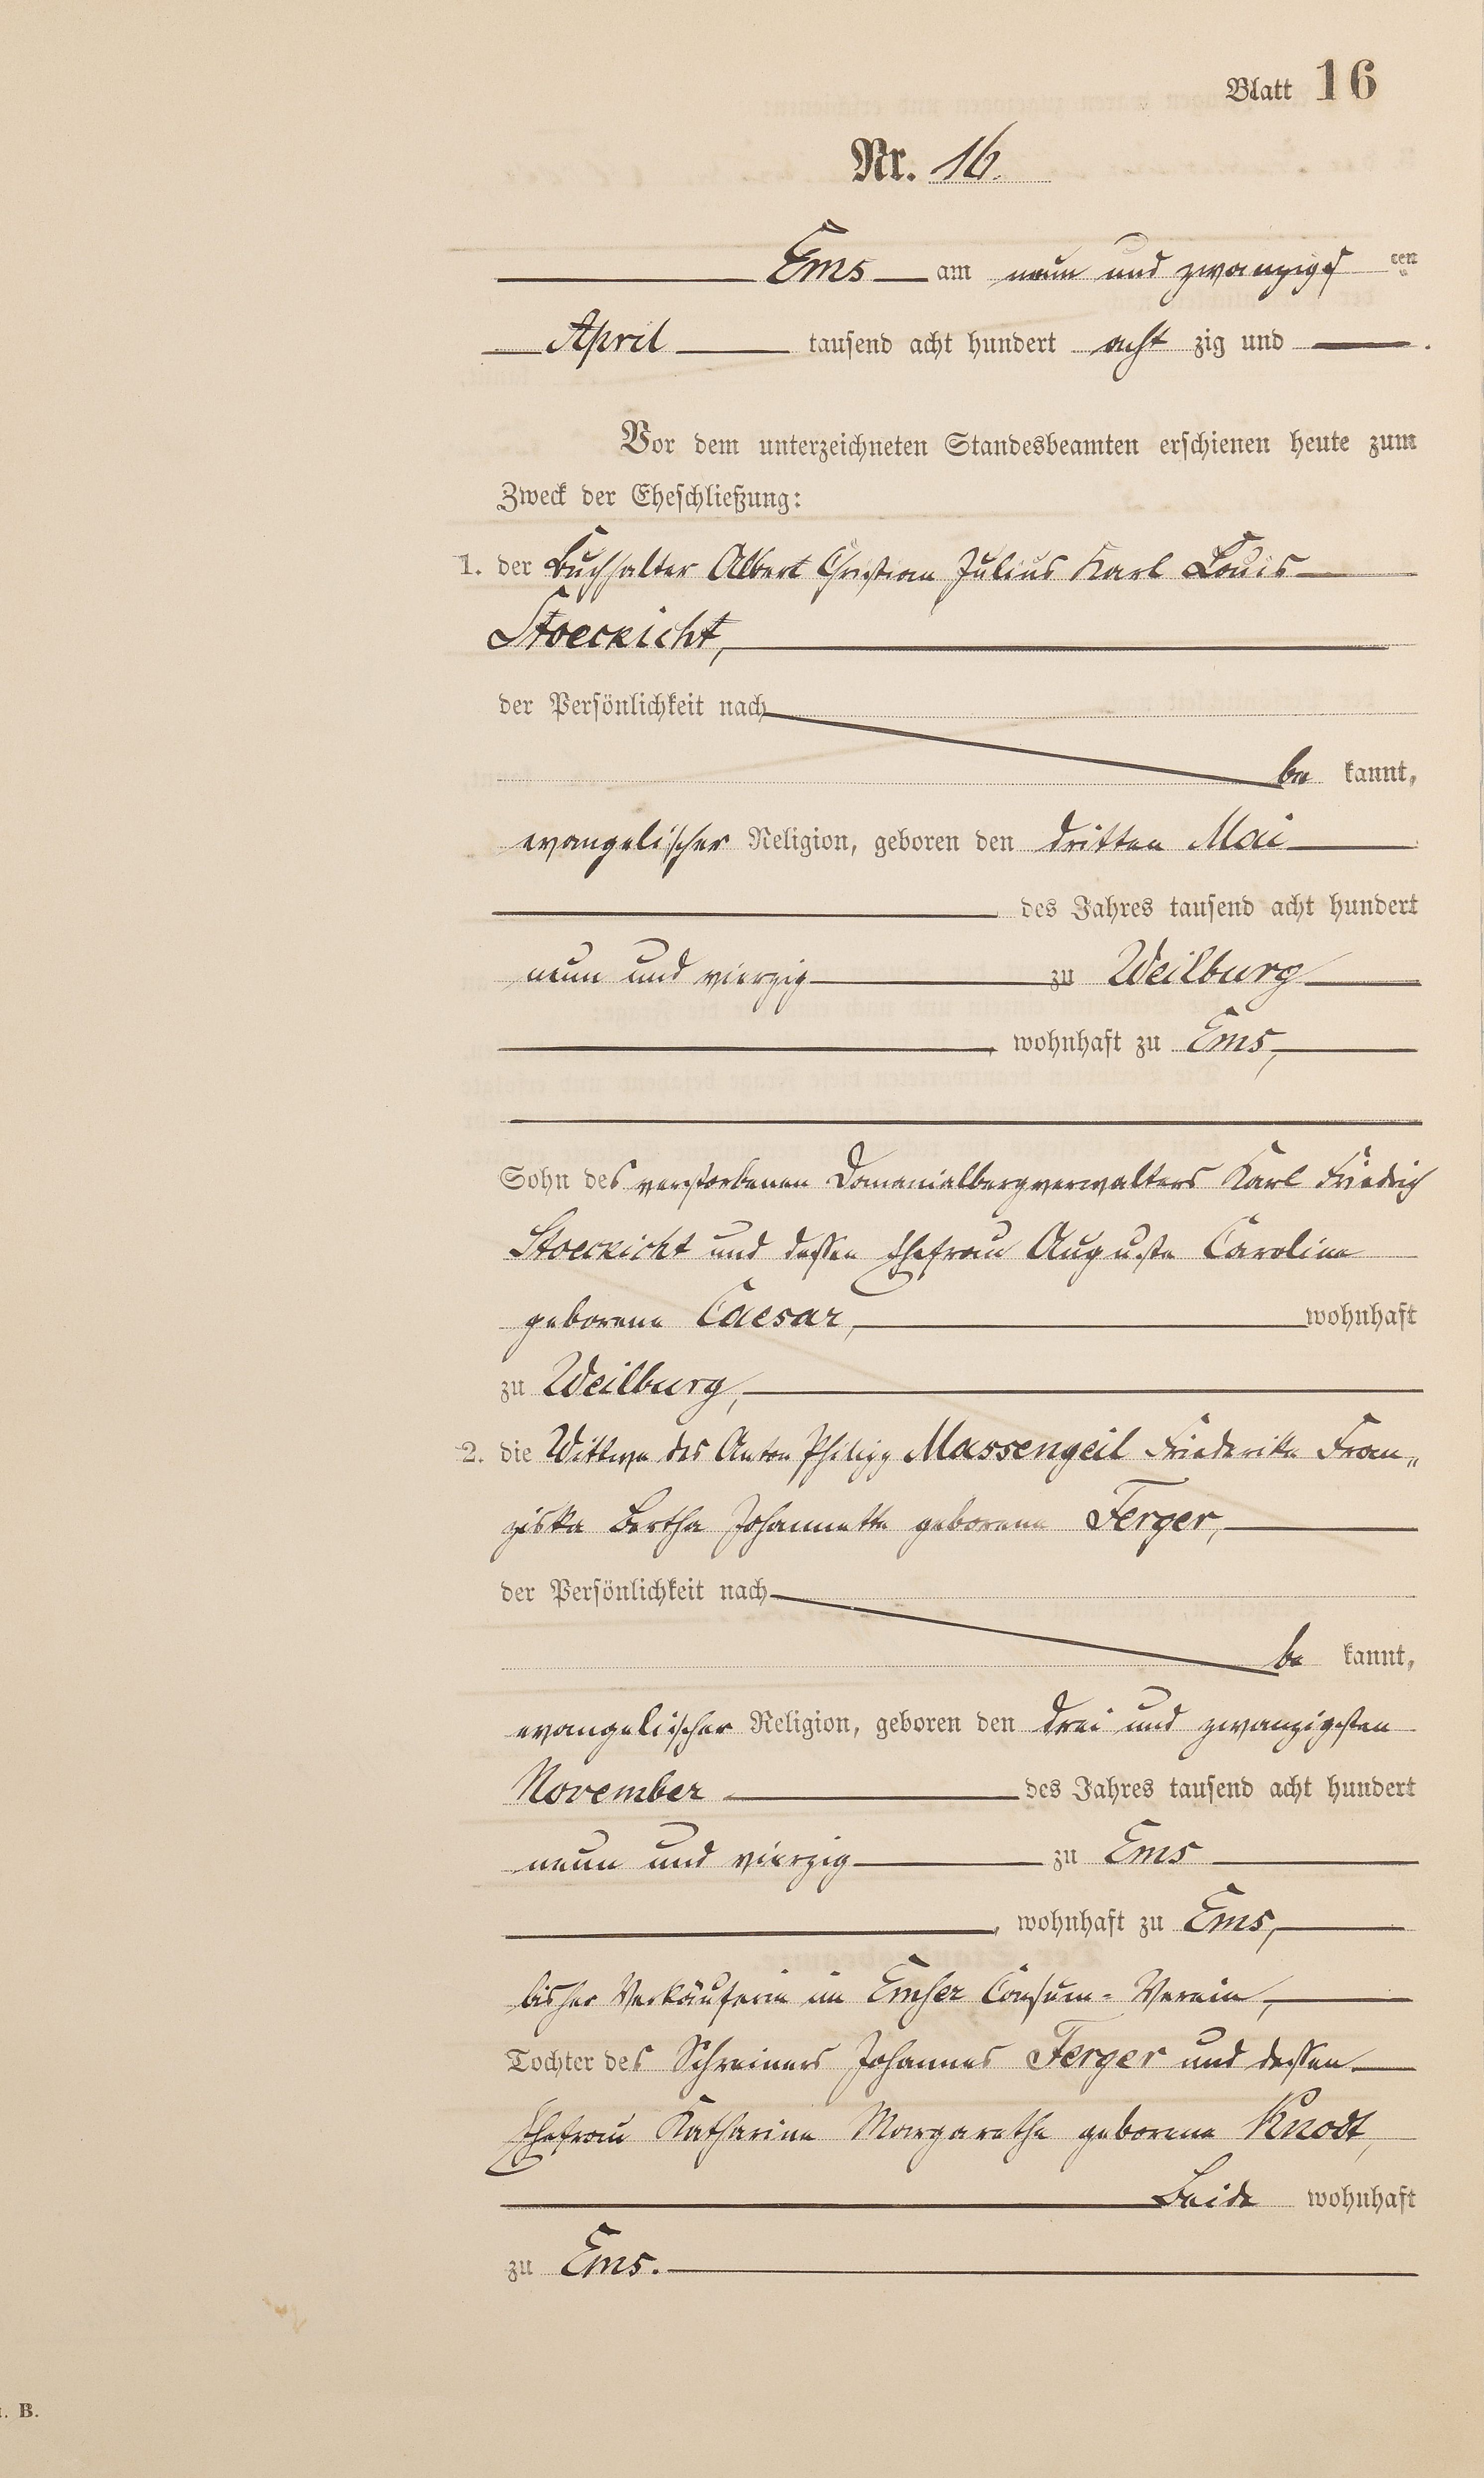 Blatt 16
Nr. 16.
Ems am neun und zwanzigst ten
April tausend acht hundert acht zig und
Vor dem unterzeichneten Standesbeamten erschienen heute zum
Zweck der Eheschließung:
1. der Buchhalter Albert Christian Julius Karl Louis
Stoeckicht,
der Persönlichkeit nach
be kannt,
evangelischer Religion, geboren den dritten Mai
des Jahres tausend acht hundert
neun und vierzig zu Weilburg
, wohnhaft zu Ems,
Sohn des verstorbenen Domanialbergverwalters Karl Friedrich
Stoeckicht und dessen Ehefrau Auguste Caroline
geborene Caesar, wohnhaft
zu Weilburg,
2. die Wittwe des Anton Philipp Massengeil Friederike Fran„
ziska Bertha Johannette geborene Ferger,
der Persönlichkeit nach
be kannt,
evangelischer Religion, geboren den drei und zwanzigsten
November des Jahres tausend acht hundert
neun und vierzig zu Ems
, wohnhaft zu Ems,
bisher Verkäuferin im Emser Consum-Verein,
Tochter des Schreiners Johannes Ferger und dessen
Ehefrau Katharine Margarethe geborene Knodt,
Beide wohnhaft
zu Ems.
. B.